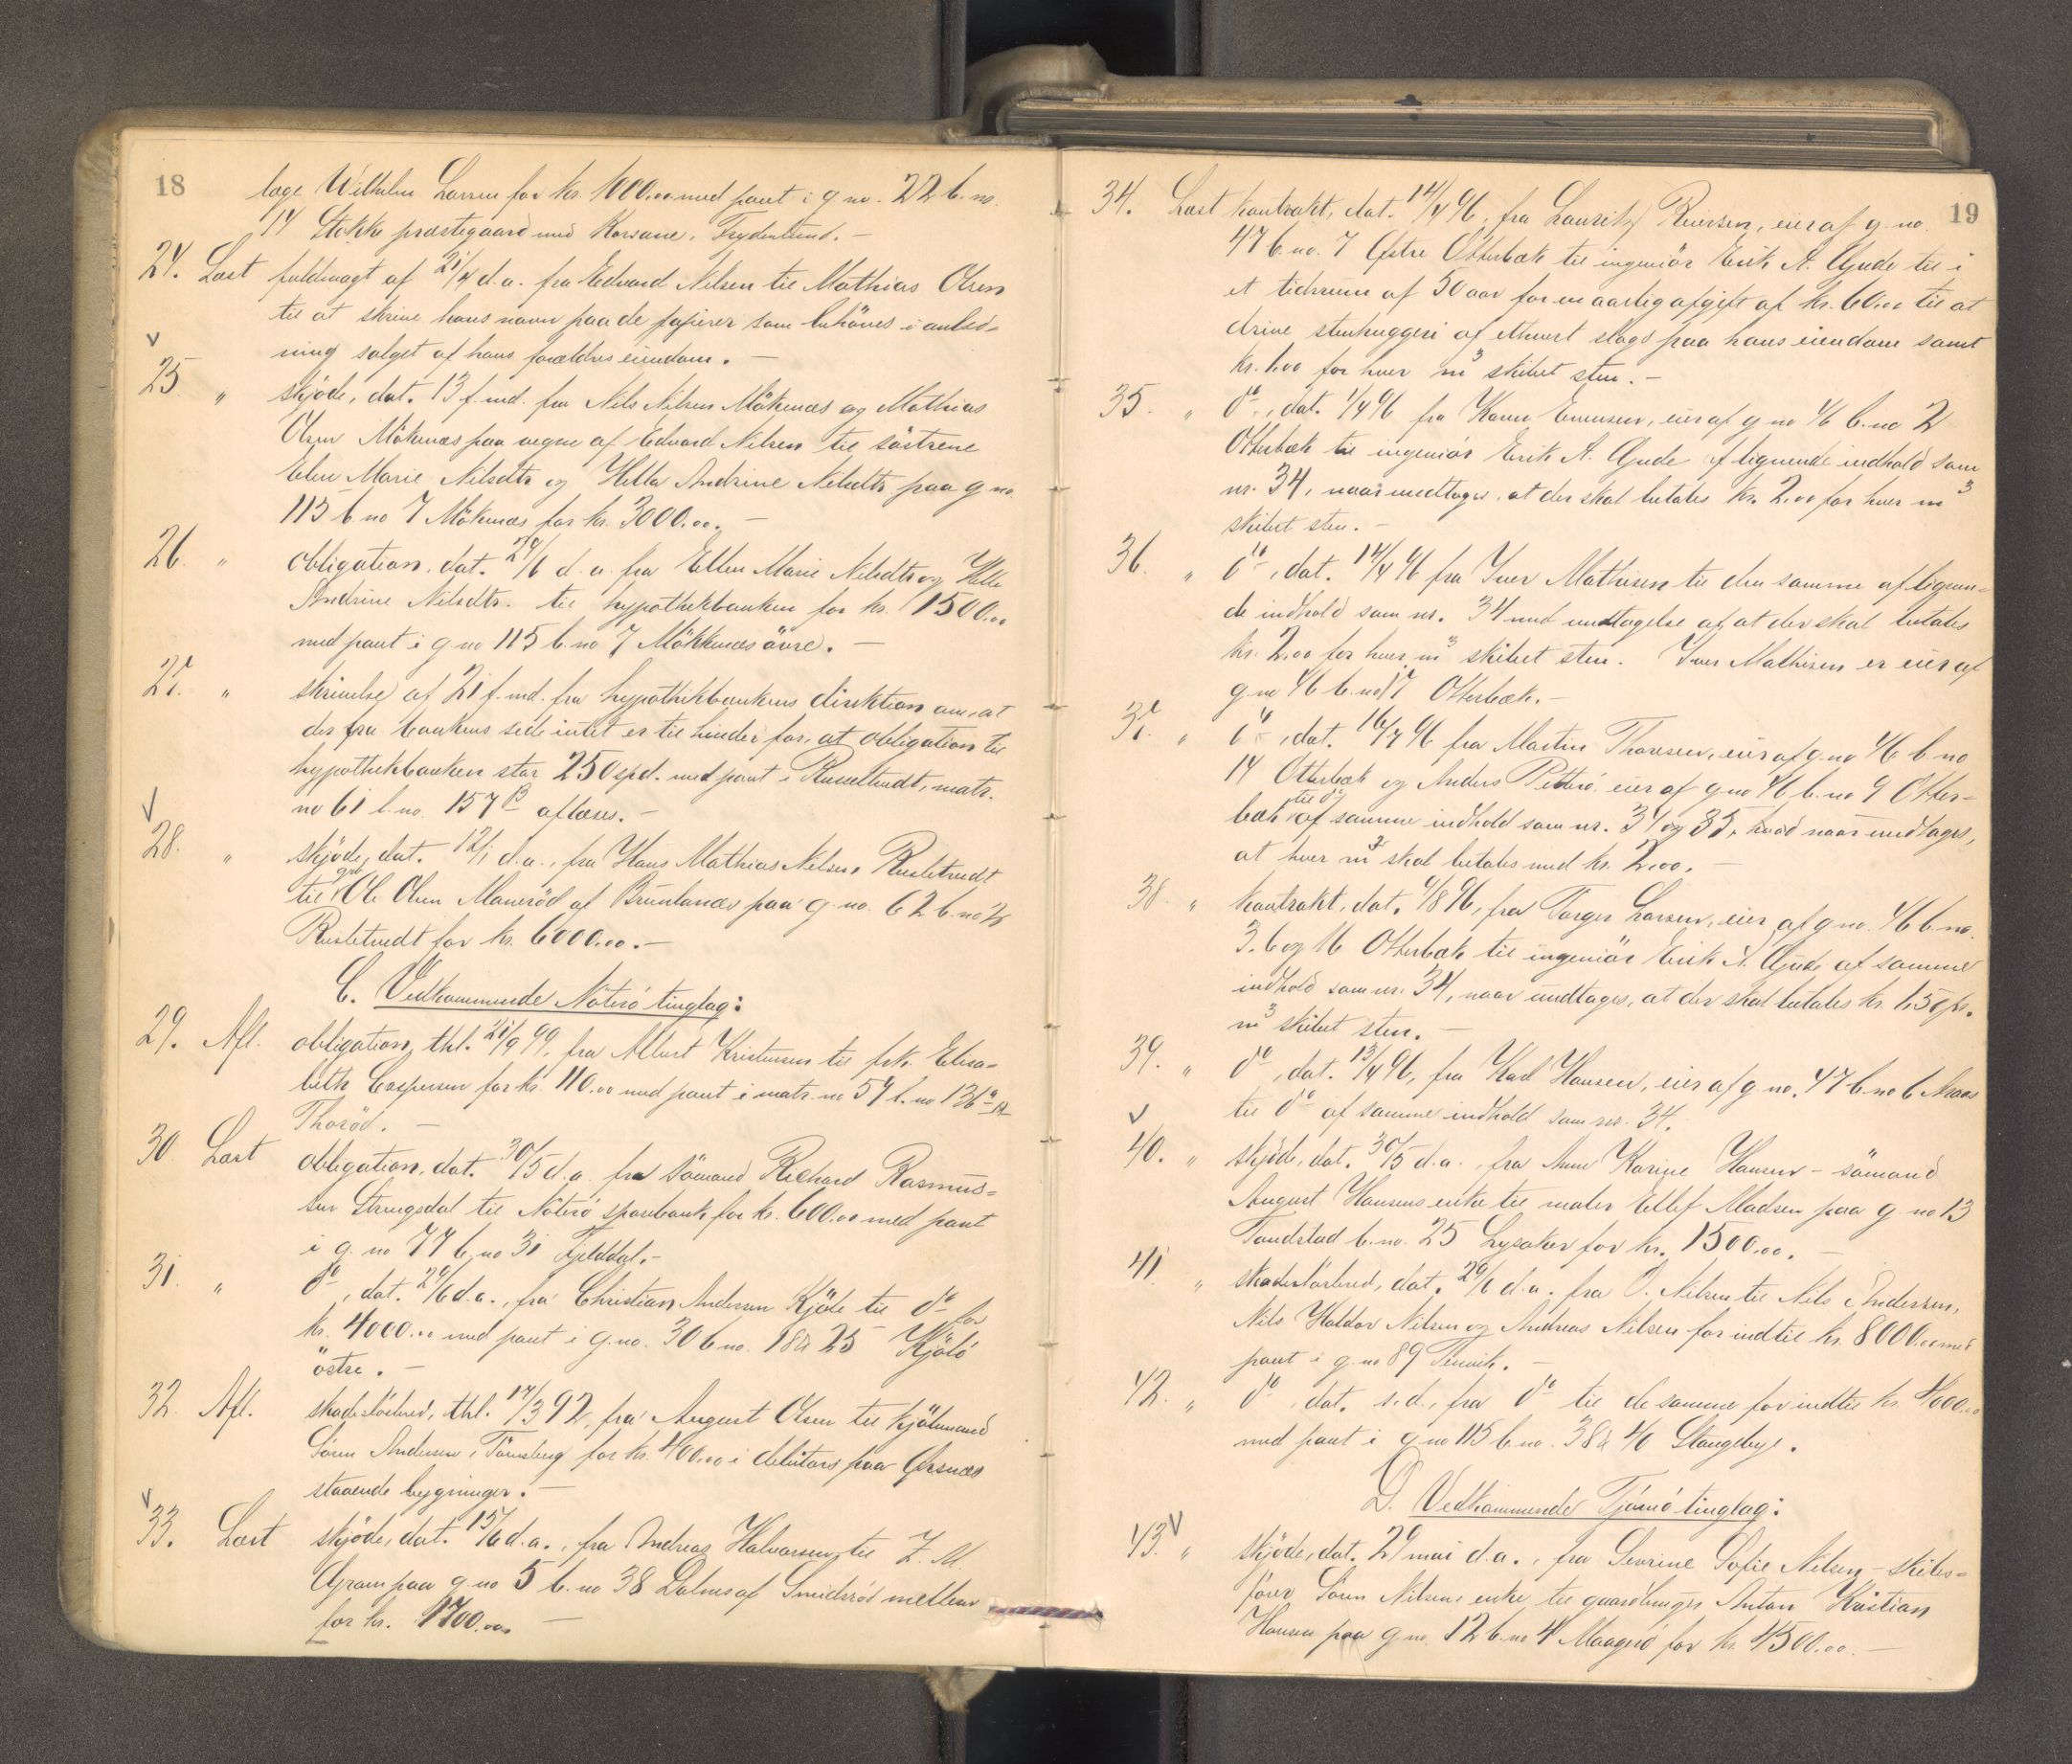 18
lage Wilhelm Larsen for kr. 1000.00 med pant i g no. 22 b. no.
14 Stokke præstegaard med Korsane, Frydenlund. –
24. Læst fuldmagt af 21/4 d.a. fra Edvard Nilsen til Mathias Olsen
til at skrive hans navn paa de papirer som behöves i anled-
ning salget af hans forældres eiendom. –
25 " skjöde, dat. 13 f. md. fra Nils Nilsen Mökenæs og Mathias
Olsen Mökenæs paa vegne af Edvard Nilsen til söstrene
Elen Marie Nilsdtr og Hella Andrine Nilsdtr paa g no.
115 b no 7 Mökenæs for kr. 3000.00. –
26. " obligation, dat. 24/6 d. a. fra Ellen Marie Nilsdtr og Hella
Andrine Nilsdtr. til hypothekbanken for kr. 1500.00
med pant i g no 115 b. no 7 Mökkenæs övre. –
27. " skrivelse af 21 f. md. fra hypothekbankens direktion om, at
der fra bankens side intet er til hinder for, at obligation til
hypothekbanken stor 250 spd. med pant i Russeltvedt, matr.
no 61 l. no. 157 B aflæses. –
28. " skjöde, dat. 12/1 d. a., fra Hans Mathias Nilsen Rustetvedt
til gbr Ole Olsen Manneröd af Brunlanæs paa g. no. 62 b. no 2
Rustetvedt for kr. 6000.00. –
C. Vedkommende Nöterö tinglag:
29. Afl. obligation, thl. 21/9 99, fra Albert Kristensen til frk. Elisa-
beth Caspersen for kr. 110.00 med pant i matr. no 54 l. no 136 a
Thoröd. –
30 Læst obligation, dat. 30/5 d. a. fra sömand Richard Rasmus-
sen Strengsdal til Nöterö sparebank for kr. 600.00 med pant
i g. no 77 b. no 31 Fjelddal. –
31. " do, dat. 20/6 d. a., fra Christian Andersen Kjöle til do for
kr. 4000.00 med pant i g. no. 30 b no. 18 & 25 Kjölö
östre. –
32. Afl. skadeslösbrev, thl. 17/3 92, fra August Olsen til kjöbmand
Sören Andersen i Tönsberg for kr. 400.00 i debitors paa Örsnæs
staaende bygninger. –
33. Læst skjöde, dat. 15/6 d. a., fra Andreas Halvorsen til Z. M.
Gram paa g. no 5 b. no 38 Dalus af Smidsröd mellem
for kr. 1700.00 –
19
34. Læst kontrakt, dat. 14/4 96, fra Lauritz Reiersen, eier af g. no.
47 b. no. 7 Østre Otterbæk til ingeniör Erik A. Gude til i
et tidsrum af 50 aar for en aarlig afgift af kr. 60.00 til at
drive stenhuggeri af ethvert slags paa hans eiendom samt
kr. 1.00 for hver m3 skibet sten. –
35. " do, dat. 1/4 96 fra Karen Evensen, eier af g no 46 b. no 2
Otterbæk til ingeniör Erik A. Gude af lignende indhold som
nr. 34, naar undtages, at der skal betales kr. 2.00 for hver m3
skibet sten. –
36. " do, dat. 14/4 96 fra Iver Mathisen til den samme af lignen-
de indhold som nr. 34 med undtagelse af, at der skal betales
kr. 2.00 for hver m3 skibet sten. Iver Mathisen er eier af
g. no 46 b. no 17 Otterbæk. –
37. " do, dat. 16/7 96 fra Martin Thoresen, eier af g. no 46 b. no
14 Otterbæk og Anders Petterö, eier af g. no 46 b. no 9 Otter-
bæk til do af samme indhold som nr. 34 og 35, hvad naar undtages,
at hver m3 skal betales med kr. 2.00. –
38. " kontrakt, dat. 4/8 96, fra Torger Larsen, eier af g no. 46 b. no.
3. 6 og 16 Otterbæk til ingeniör Erik A. Gude af samme
indhold som nr. 34, naar undtages, at der skal betales kr. 1.50 pr.
m3 skibet sten. –
39. " do, dat. 13/4 96, fra Karl Hansen, eier af g. no. 47 b no 6 Moas
til do af samme indhold som no. 34.
40. " skjöde, dat. 30/5 d. a., fra Anne Karine Hansen – sömand
August Hansens enke til maler Ellef Madsen paa g. no 13
Tandstad b. no. 25 Lysaker for kr. 1500.00. –
41. " skadeslösbrev, dat. 20/6 d. a. fra O. Nilsen til Nils Andersen,
Nils Haldor Nilsen og Andreas Nilsen for indtil kr. 8000.00 med
pant i g. no 89 Tenvik. –
42. " do, dat. s. d., fra do til de samme for indtil kr. 4000.00
med pant i g no 115 b. no. 38 & 40 Stangeby.
D. Vedkommende Tjömö tinglag:
43. " skjöde, dat. 29 mai d. a., fra Severine Sofie Nilsen – skibs-
förer Sören Nilsens enke til gaardbruger Anton Kristian
Hansen paa g. no. 12 b. no 4 Maagerö for kr. 4500.00. –